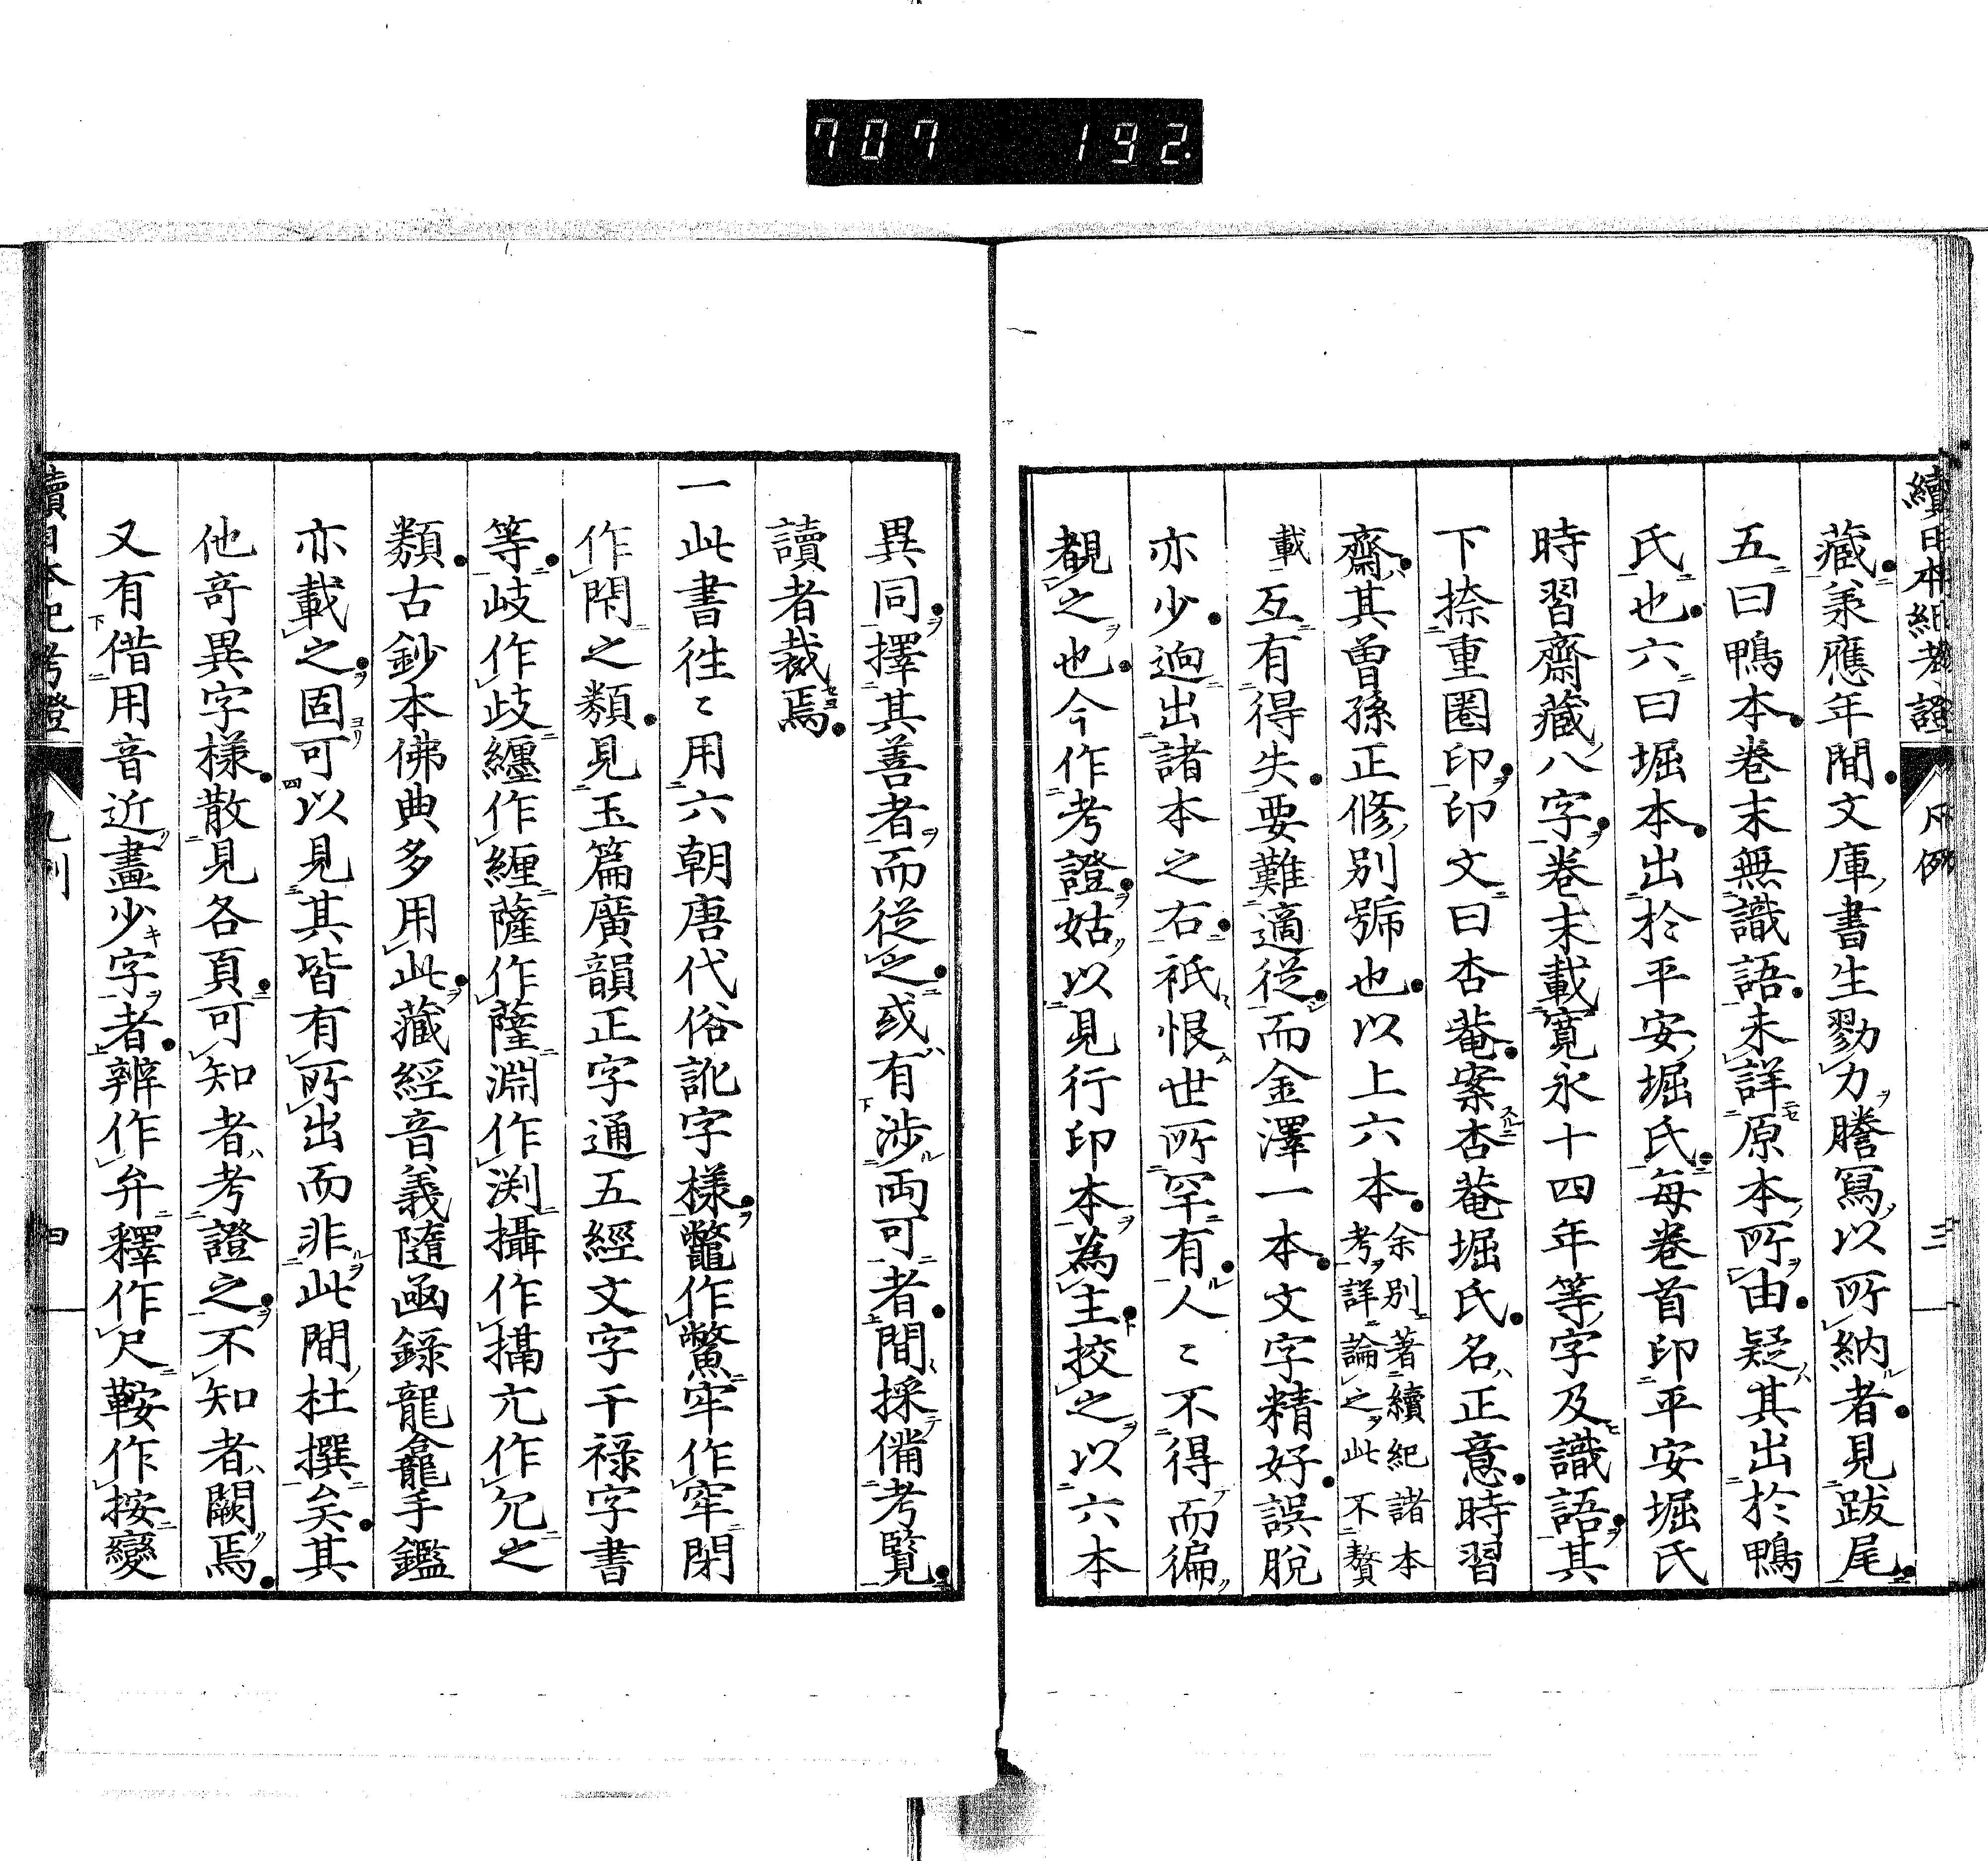 707 192.
續日本紀考證 凡例 三
藏兼應年間文庫書生勠力謄寫以所納者見跋尾
五曰鴨本卷末無識語未詳原本所由疑其出於鴨
氏也六曰堀本出於平安堀氏每卷首印平安堀氏
時習齋藏八字卷末載寬永十四年等字及識語其
下捺重圈印印文曰杏菴案杏菴堀氏名正意時習
齋其曾孫正修別號也以上六本余別著續紀諸本考詳論之此不贅
載互有得失要難適從而金澤一本文字精好誤脫
亦少迥出諸本之右祇恨世所罕有人〻不得而徧
覩之也今作考證姑以見行印本為主挍之以六本
異同擇其善者而從之或有涉両可者間採備考覽
讀者裁焉
一此書徃〻用六朝唐代俗訛字樣鼈作鱉牢作窂閉
作閇之類見玉篇廣韻正字通五經文字干祿字書
等岐作歧纏作緾薩作薩淵作渕攝作摂亢作冗之
類古鈔本佛典多用此藏經音義隨函錄龍龕手鑑
亦載之固可以見其皆有所出而非此間杜撰矣其
他竒異字樣散見各頁可知者考證之不知者闕焉
又有借用音近畫少字者辨作弁釋作尺鞍作按變
續日本紀考證 凡例 四